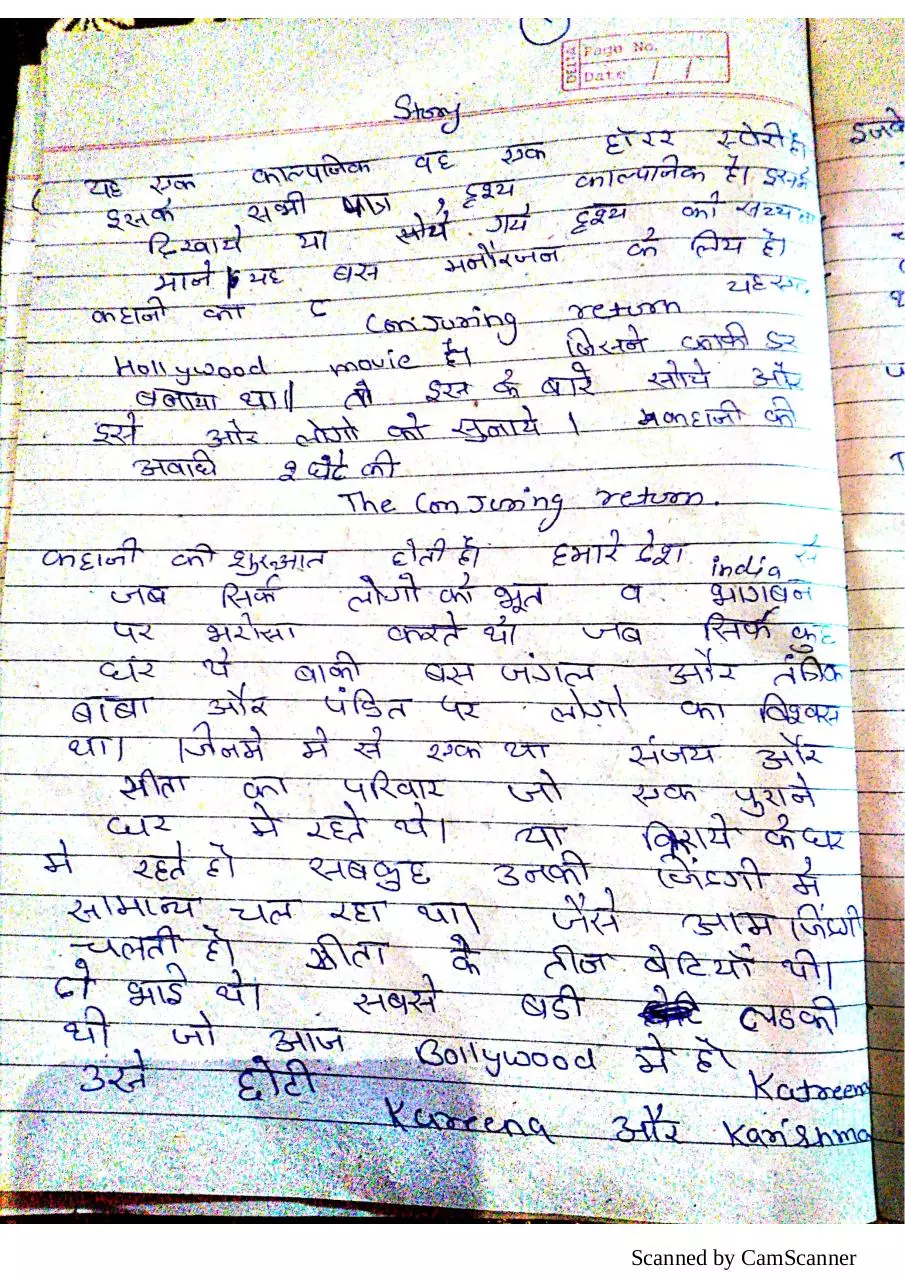 DELTA Page No.
Date / /
Story
यह एक काल्पनिक वह एक हॉरर स्टोरी है।
इसके सभी पात्र, दृश्य काल्पनिक है। इसमें
दिखाये या सोचे गये दृश्य को सत्य
माने यह बस मनोरंजन के लिय है।
कहानी का
यह एक
Conjuring return
Hollywood movie है। जिसने काफी डर
बनाया था। तो इस के बारे सोचे और
इसे और लोगो को सुनाये। कहानी की
अवधि 2 घंटे की
The Conjuring return.
कहानी की शुरुआत होती है। हमारे देश india से
जब सिर्फ लोगो को भूत व भागबन
पर भरोसा करते थे। जब सिर्फ कुछ
घर थे बाकी बस जंगल और तंत्रिक
बाबा और पंडित पर लोगो का विश्वस
था। जिनमे मे से एक था संजय और
सीता का परिवार जो एक पुराने
घर मे रहते थे। या किराये के घर
मे रहते हो सबकुछ उनकी जिंदगी में
सामान्य चल रहा था। जैसे आम जिंदगी
चलती हो सीता के तीन बेटियाँ थी।
दो भाई थे। सबसे बडी लडकी
थी जो आज Bollywood मे हो
Katreena
उसे छोटी
Kareena और Karishma
Scanned by CamScanner